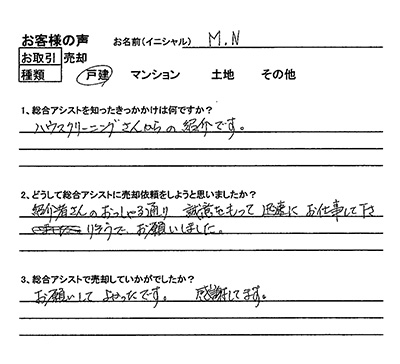 お客様の声 お名前(イニシャル) M.N
お取引 売却
種類 戸建 マンション 土地 その他
1、総合アシストを知ったきっかけは何ですか?
ハウスクリーニングさんからの紹介です。
2、どうして総合アシストに売却依頼をしようと思いましたか?
紹介者さんのおっしゃる通り 誠意をもって 迅速に お仕事して下さ
りそうで、お願いしました。
3、総合アシストで売却していかがでしたか?
お願いして よかったです。 感謝してます。